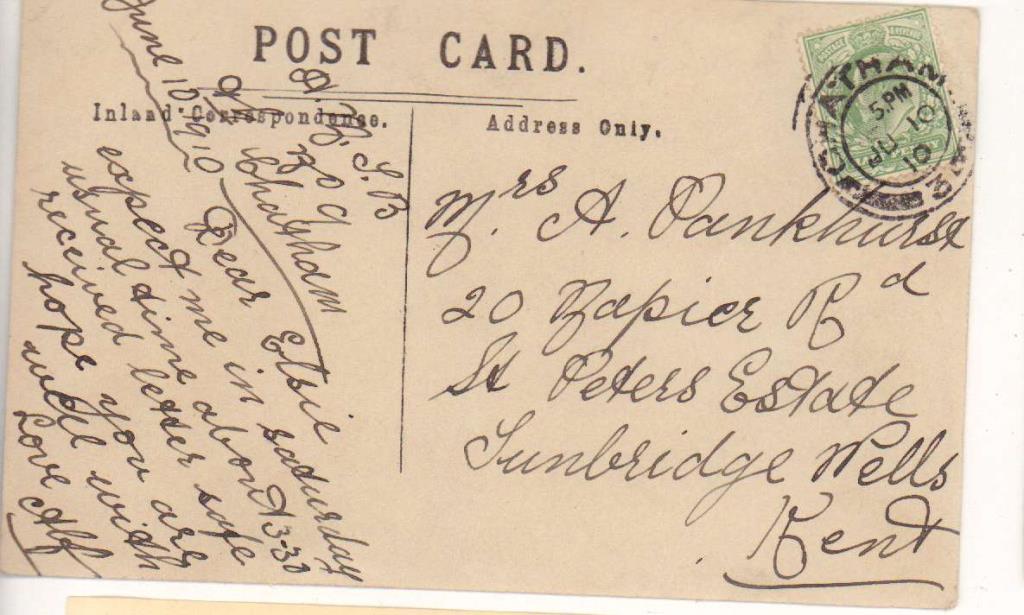 POST CARD.
Inland Correspondence.
Address Only.
June 10 1910
Chatham
Dear Elsie
expect me in saturday
usual time about 3-30
received letter safe
hope you are
well with
Love Alf
Mrs A. Pankhurst
20 Napier Rd
St Peters Estate
Tunbridge Wells
Kent
CHATHAM
5. PM
JU 10
10